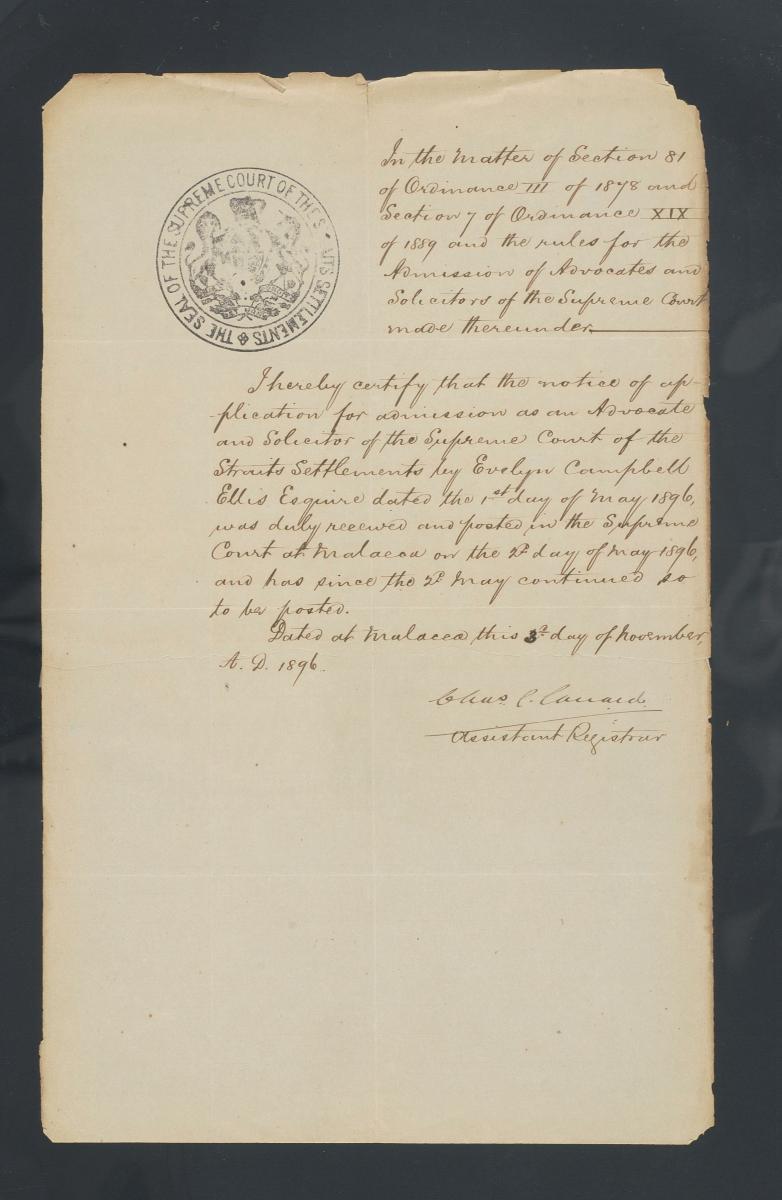 THE SEAL OF THE SUPREME COURT OF THE S ITS SETTLEMENTS
In the Matter of Section 81
of Ordinance III of 1878 and
Section 7 of Ordinance XIX
of 1889 and the rules for the
Admission of Advocates and
Solicitors of the Supreme Court
made thereunder
I hereby certify that the notice of ap-
-plication for admission as an Advocate
and Solicitor of the Supreme Court of the
Straits Settlements by Evelyn Campbell
Ellis Esquire dated the 1st day of May 1896,
was duly received and posted in the Supreme
Court at Malacca on the 2d day of May 1896,
and has since the 2d May continued so
to be posted.
Dated at Malacca this 3d day of November,
A. D. 1896.
Chas C.
Assistant Registrar